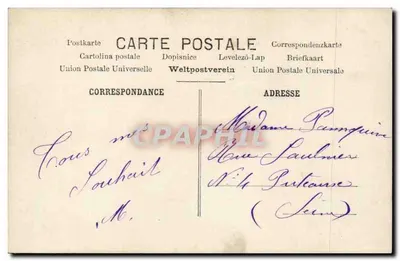 Postkarte CARTE POSTALE Correspondenzkarte
Cartolina postale Dopisnice Levelező-Lap Briefkaart
Union Postale Universelle Weltpostverein Union Postale Universale
CORRESPONDANCE
Tous mes
Souhait
M.
ADRESSE
Madame
Rue Saulnier
No 4 Puteaux
(Seine)
CPAPHIL